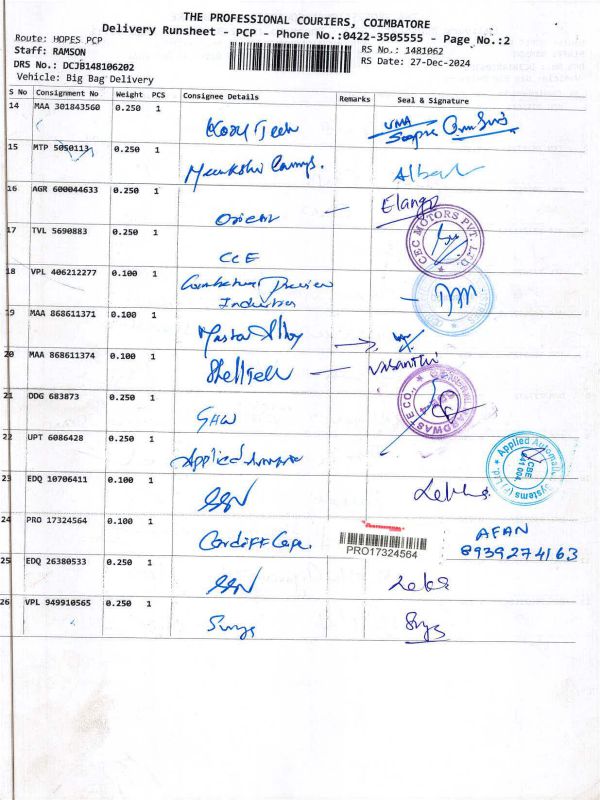 THE PROFESSIONAL COURIERS, COIMBATORE
Delivery Runsheet - PCP - Phone No.:0422-3505555 - Page No.:2
Route: HOPES PCP
Staff: RAMSON
RS No.: 1481062
DRS No.: DCJB148106202
RS Date: 27-Dec-2024
Vehicle: Big Bag Delivery
S No Consignment No Weight PCS Consignee Details Remarks Seal & Signature
14 MAA 301843560 0.250 1
15 MTP 5050113 0.250 1
16 AGR 600044633 0.250 1 Orient Elango
17 TVL 5690883 0.250 1 CCE CEC MOTORS PVT. LTD.
18 VPL 406212277 0.100 1 Coimbatore Industries
19 MAA 868611371 0.100 1 Master Alloy
20 MAA 868611374 0.100 1 Shelltech Vasanthi
21 DDG 683873 0.250 1
22 UPT 6086428 0.250 1 Applied Applied Automatic Systems (P) Ltd. CBE 641 004.
23 EDQ 10706411 0.100 1
24 PRO 17324564 0.100 1 Cardiff PRO17324564 AFAN
8939274163
25 EDQ 26380533 0.250 1
26 VPL 949910565 0.250 1 Surya